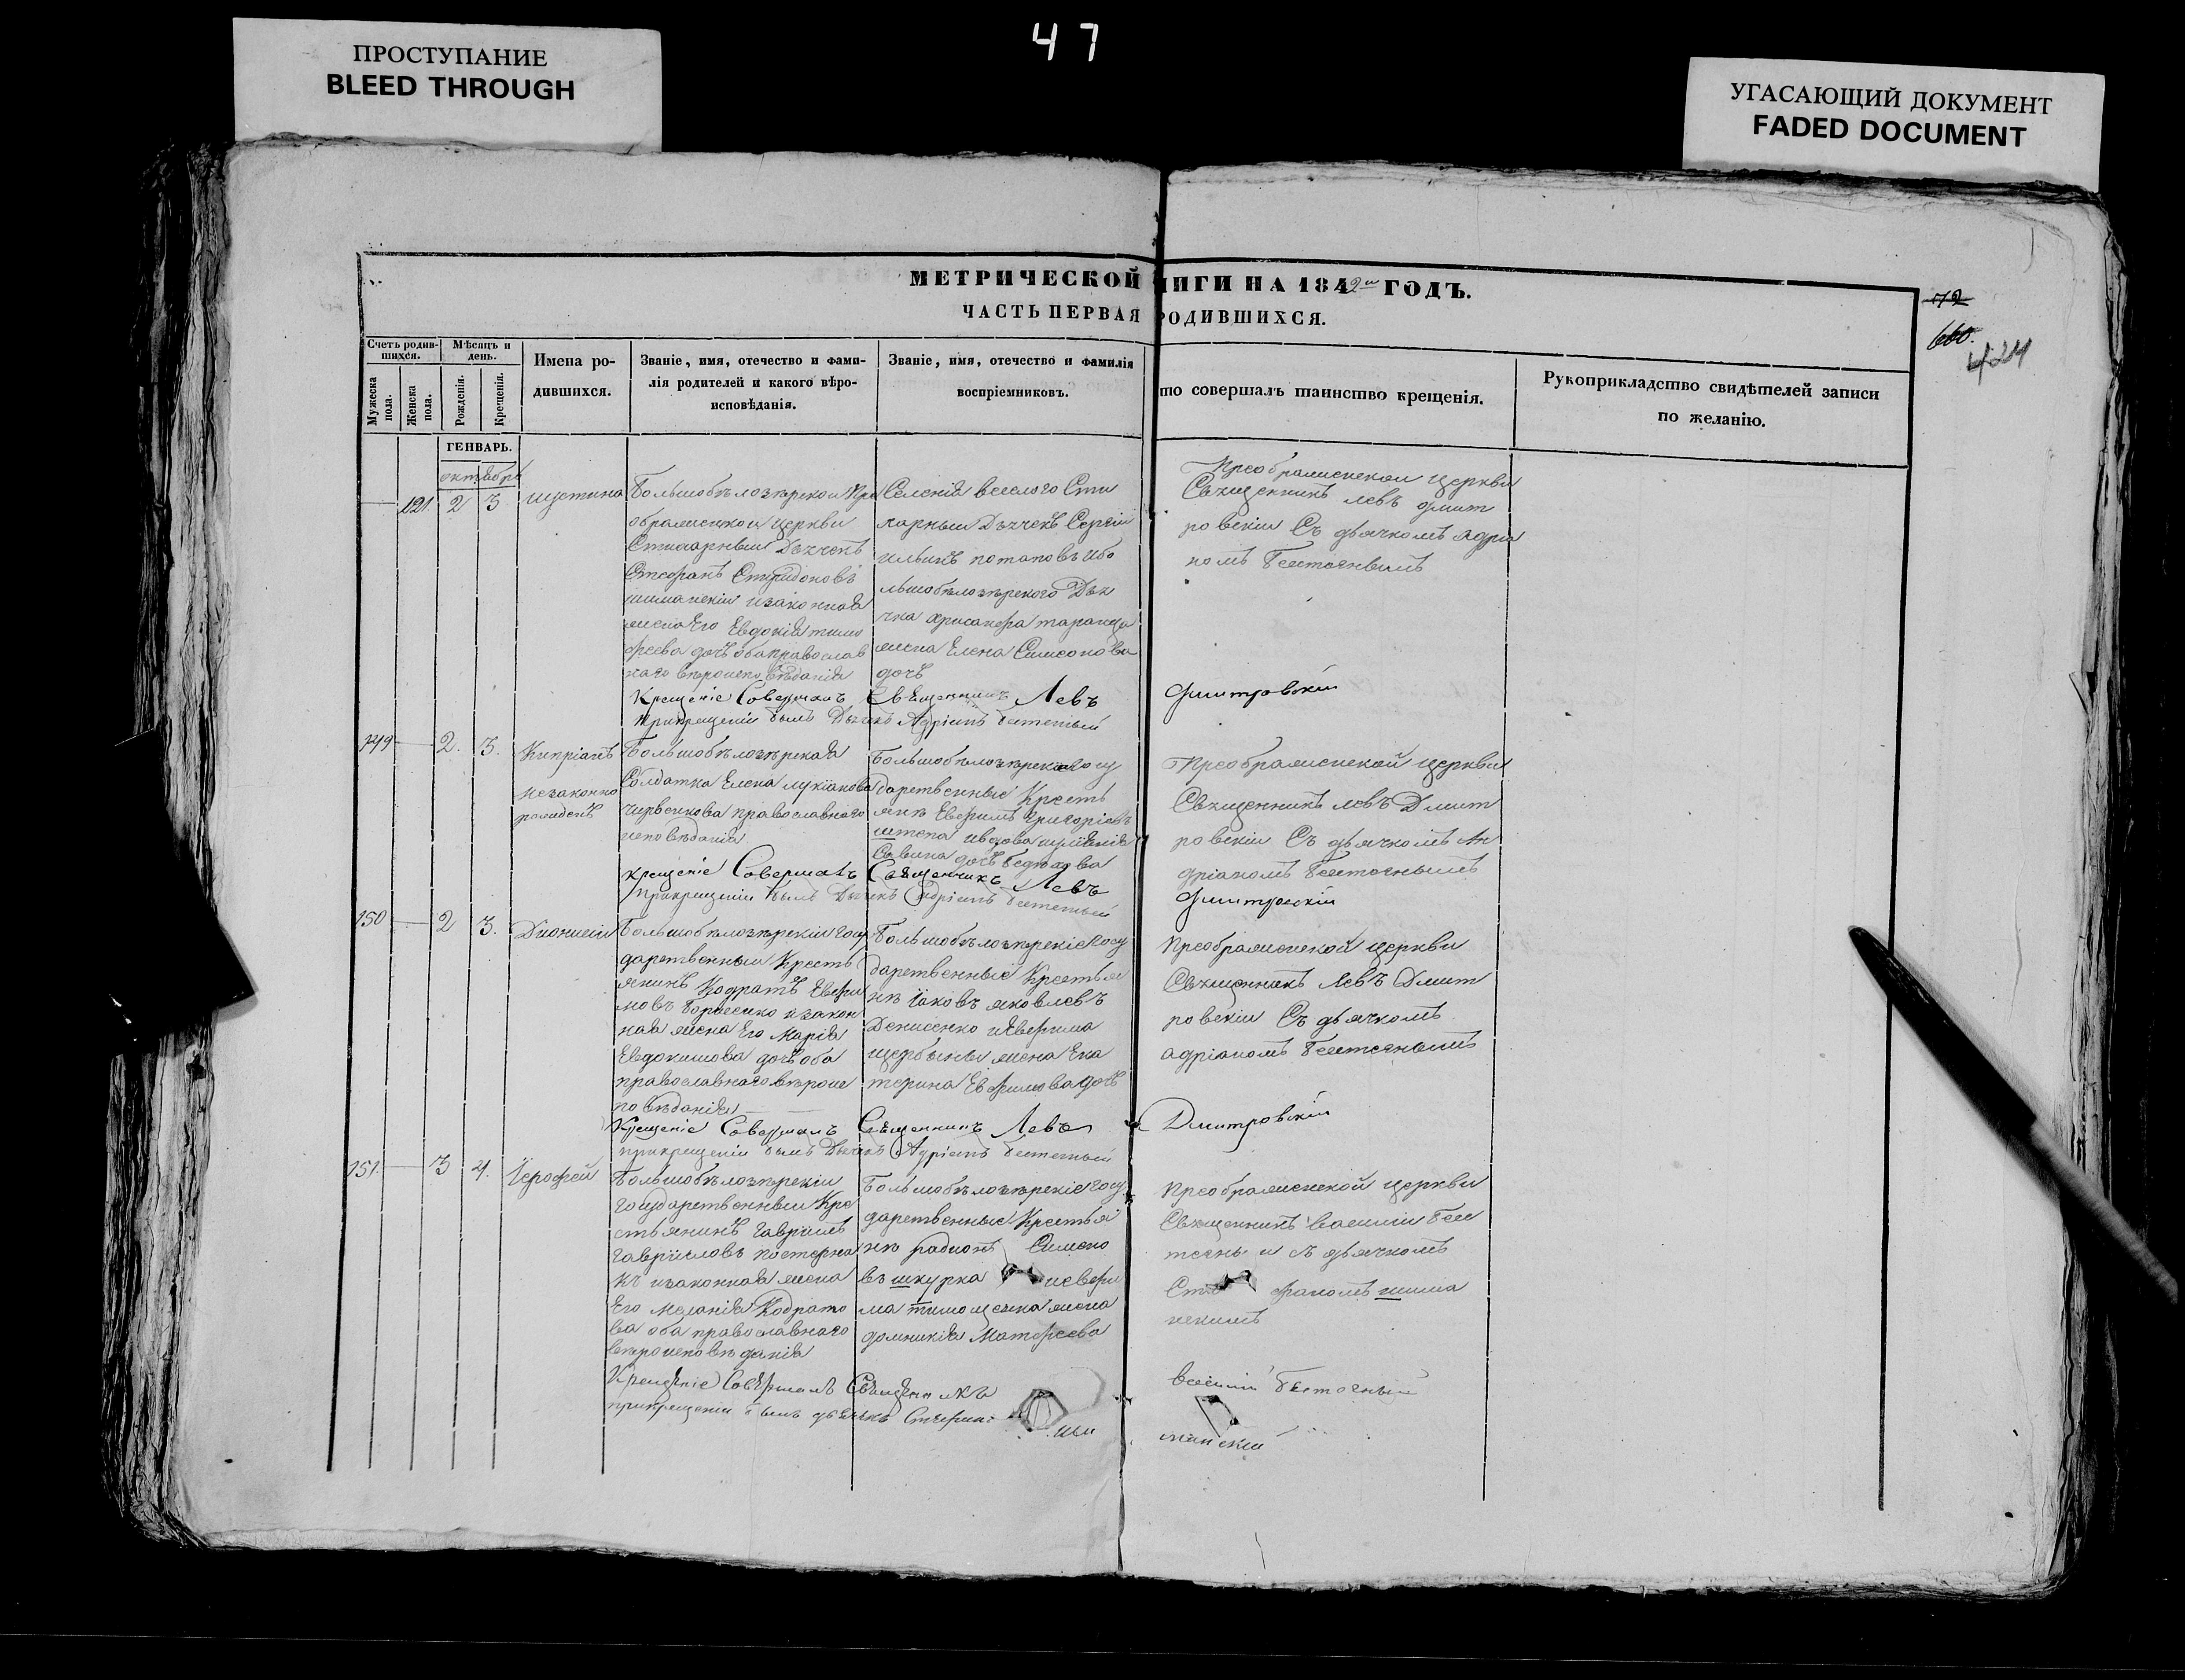 ПРОСТУПАНИЕ
BLEED THROUGH
47
УГАСАЮЩИЙ ДОКУМЕНТ
FADED DOCUMENT
МЕТРИЧЕСКОЙ НИГИ НА 1842й ГОДЪ.
ЧАСТЬ ПЕРВАЯ РОДИВШИХСЯ.
72
660.
424
Счетъ родив-
шихся.
Мужеска
пола.
Женска
пола.
Мѣсяцъ и
день.
Рожденія.
Крещенія.
Имена ро-
дившихся.
Званіе, имя, отечество и фами-
лія родителей и какого вѣро-
исповѣданія.
Званіе, имя, отечество и фамилія
воспріемниковъ.
то совершалъ таинство крещенія.
Рукоприкладство свидѣтелей записи
по желанію.
ГЕНВАРЬ.
октября
121 2 3
Іустина
Большобѣлозѣрскои Пре
ображенскои церкви
Стихарныи Дьячекъ
Стефанъ Спиридоновъ
шиманскіи изаконная
жена Его Евдокія тимо
феева дочь оба православ
наго вѣроисповѣданія
Селенія веселого Сти
харныи Дьячекъ Сергіи
ильинъ потаповъ ибо
льшобѣлозѣрского Дья
чка хрисанфа таранца
жена Елена Симеонова
дочь
Преображенскои церкви
Священникъ левъ дмит
ровскіи Съ дьячкомъ Адріа
номъ
Крещеніе Совершалъ Священникъ Левъ Дмитровскій
Прикрещеніи былъ Дьячекъ Адріанъ
149 2. 3.
Кипріанъ
незаконно
рожденъ
Большобѣлозѣрская
Солдатка Елена лукіанова
червенкова православного
исповѣданія
Большобѣлозѣрскіе госу
дарственные Крестья
не Евфимъ Григоріевъ
штепа ивдова
Саввина дочь
Преображенской церкви
Священникъ левъ Дмит
ровскіи Съ дьячкомъ Ан
дріаномъ
крещеніе Совершалъ Священникъ Левъ Дмитровскій
Прикрещеніи былъ Дьячекъ Адріанъ
150 2 3.
Діонисіи
Большобѣлозѣрскіи госу
дарственныи Кресть
янинъ Кодратъ Евфи
мовъ изакон
ная жена Его Марія
Евдокимова дочь оба
православнаго вѣроис
повѣданія
Большобѣлозѣрскіе Госу
дарственные Крестья
не Іаковъ яковлевъ
Денисенко иЕвфима
щербины жена Ека
терина Евфимова дочь
Преображенской церкви
Священникъ Левъ Дмит
ровскіи Съ дьячкомъ
адріаномъ
Крещеніе Совершалъ Священникъ Левъ Дмитровскій
прикрещеніи былъ Дьячекъ Адріанъ
151 3 4.
Іерофей
Большобѣлозѣрскіи
государственныи Кре
стьянинъ Гавріилъ
Гавріиловъ пастерна
къ изаконная жена
Его Меланія Кодрато
ва оба православнаго
вѣроисповѣданія
Большобѣлозѣрскіе госу
дарственные Крестья
не радіонъ Симено
въ шкурка иевфи
ма тимощенка жена
домникія Матфеева
Преображенской церкви
Священникъ Василіи
и съ дьячкомъ
Сте фаномъ шима
нскимъ
Крещеніе Совершалъ Священникъ Василій
прикрещеніи былъ дьячекъ Стефанъ Ши манскій